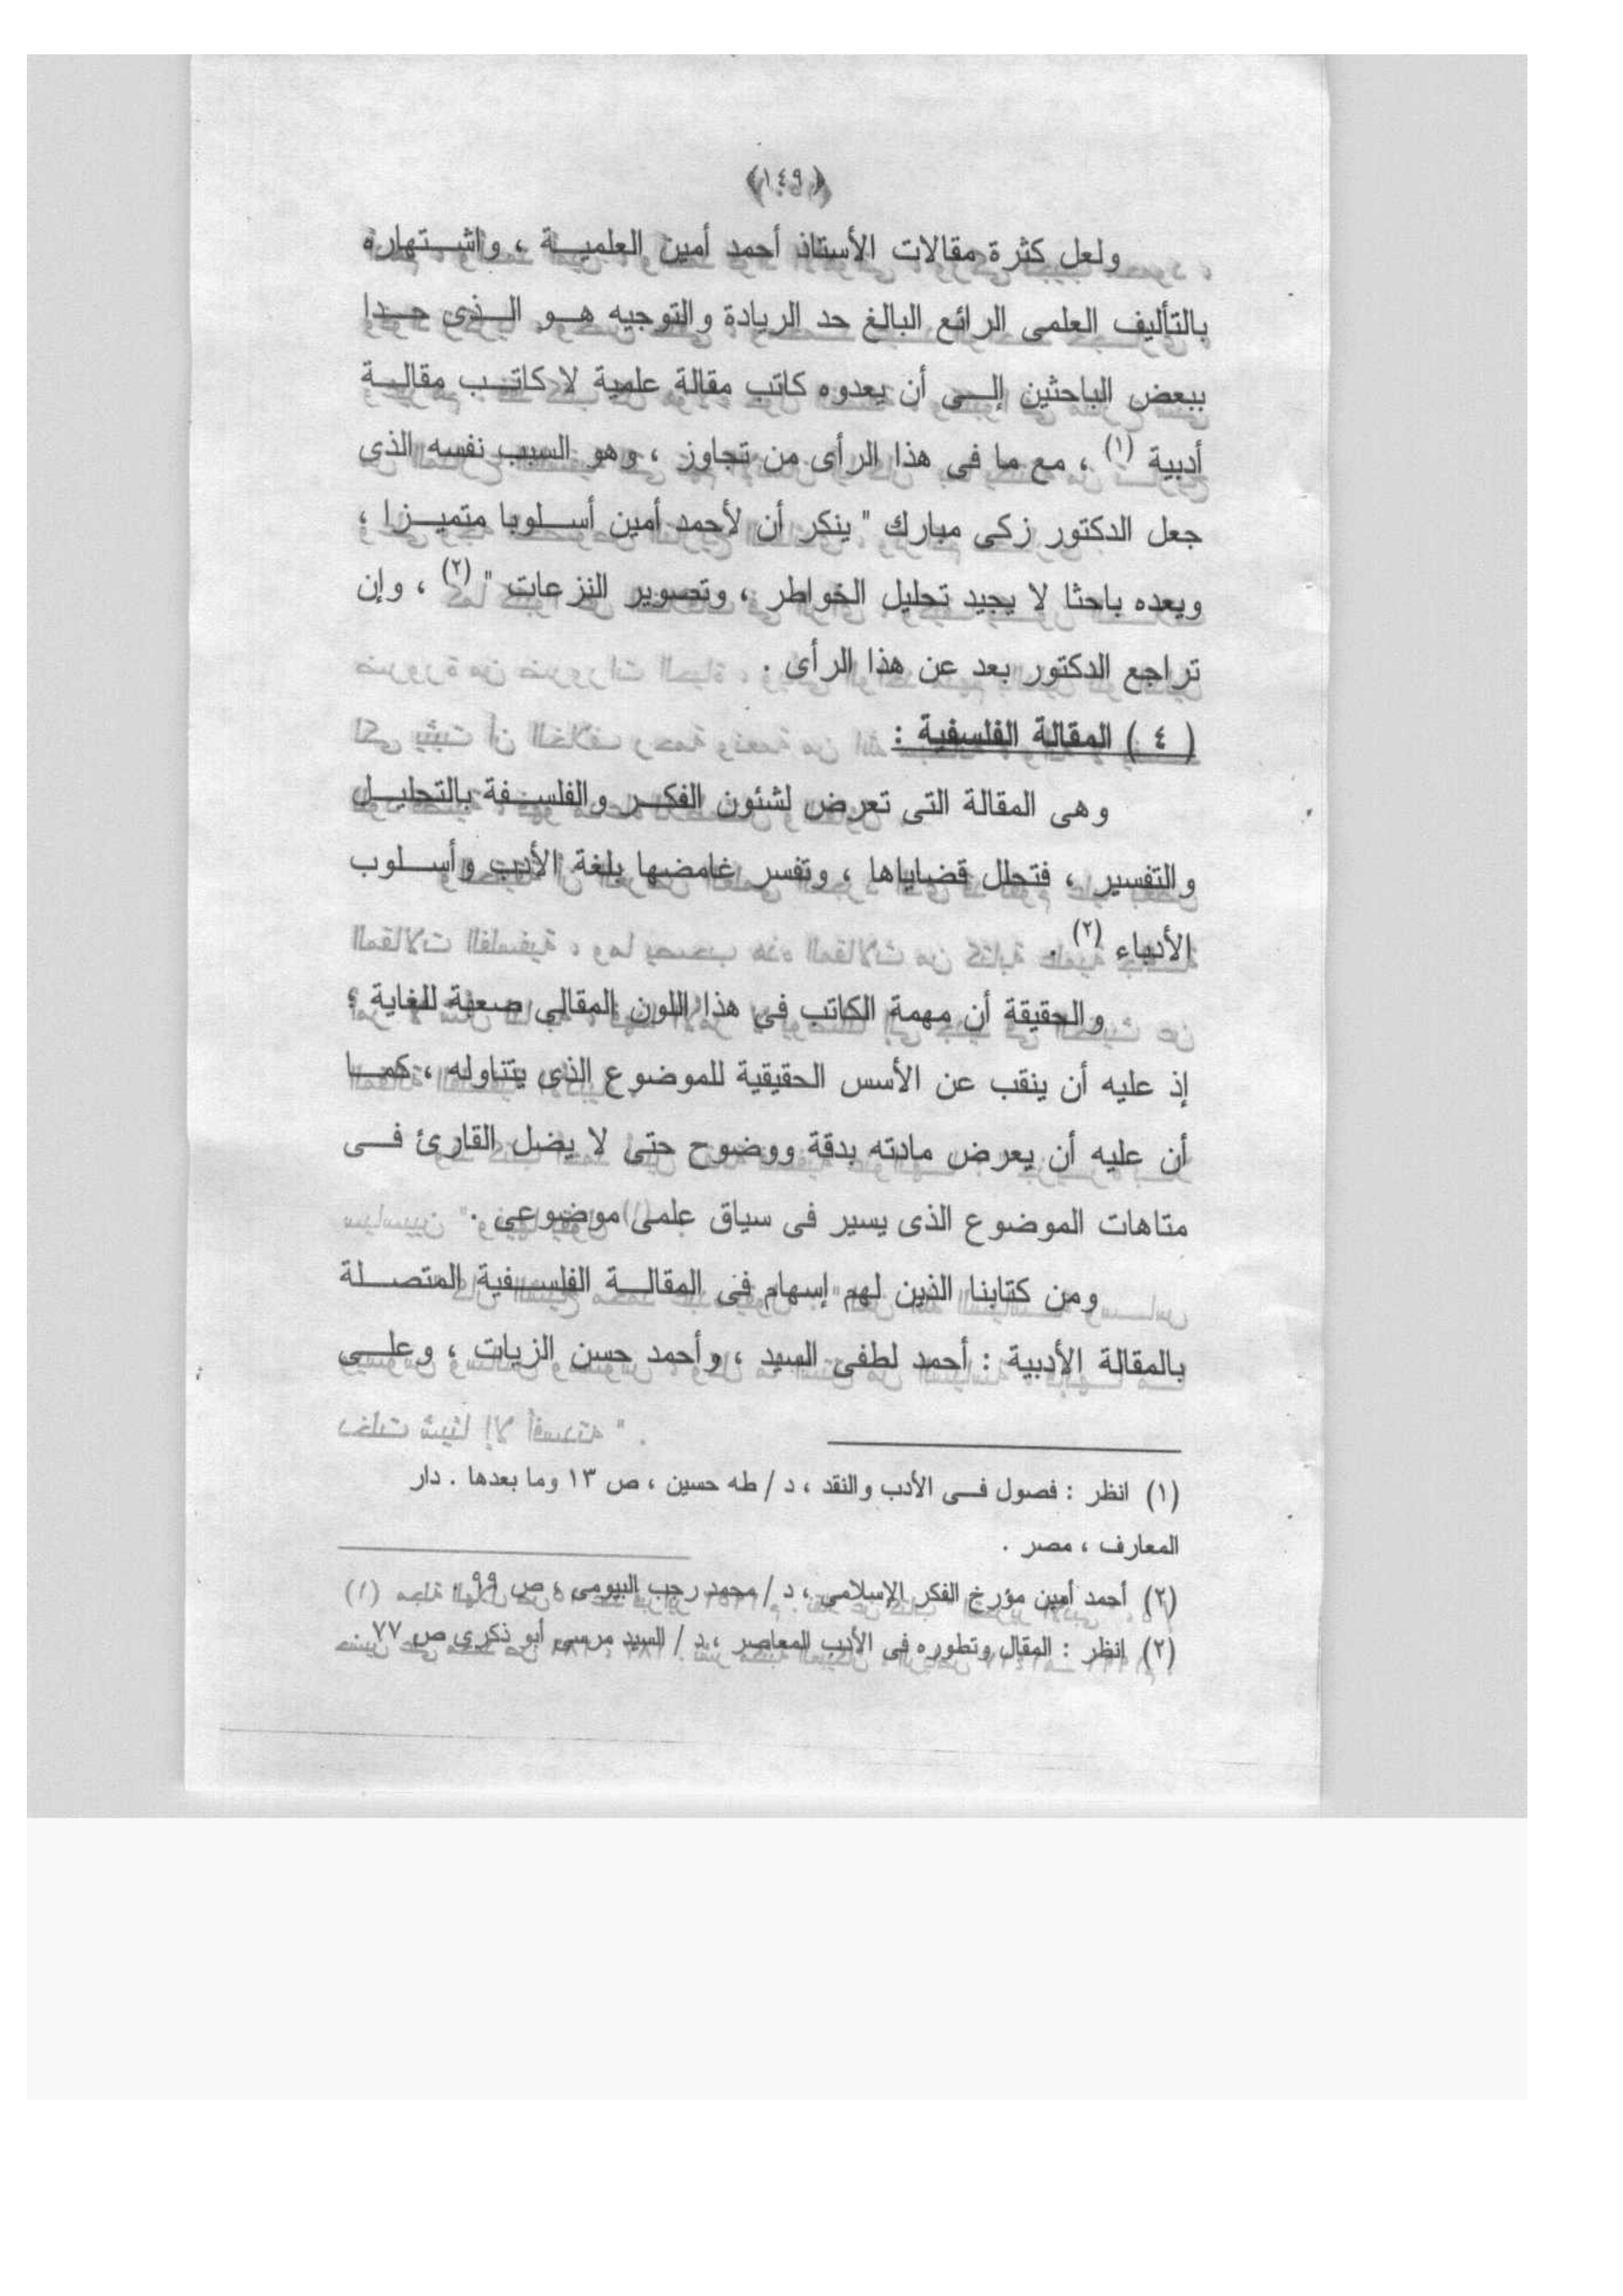 ﴿١٤٩﴾
ولعل كثرة مقالات الأستاذ أحمد أمين العلمية ، واشتهاره
بالتأليف العلمى الرائع البالغ حد الريادة والتوجيه هو الذى حدا
ببعض الباحثين إلى أن يعدوه كاتب مقالة علمية لا كاتب مقالة
أدبية (١) ، مع ما فى هذا الرأى من تجاوز ، وهو السبب نفسه الذى
جعل الدكتور زكى مبارك " ينكر أن لأحمد أمين أسلوبا متميزا ،
ويعده باحثا لا يجيد تحليل الخواطر ، وتصوير النزعات " (٢) ، وإن
تراجع الدكتور بعد عن هذا الرأى .
( ٤ ) المقالة الفلسفية :
وهى المقالة التى تعرض لشئون الفكر والفلسفة بالتحليل
والتفسير ، فتحلل قضاياها ، وتفسر غامضها بلغة الأدب وأسلوب
الأدباء (٢) .
والحقيقة أن مهمة الكاتب فى هذا اللون المقالى صعبة للغاية ؛
إذ عليه أن ينقب عن الأسس الحقيقية للموضوع الذى يتناوله ، كما
أن عليه أن يعرض مادته بدقة ووضوح حتى لا يضل القارئ فى
متاهات الموضوع الذى يسير فى سياق علمى موضوعى .
ومن كتابنا الذين لهم إسهام فى المقالة الفلسفية المتصلة
بالمقالة الأدبية : أحمد لطفى السيد ، وأحمد حسن الزيات ، وعلى
(١) انظر : فصول فى الأدب والنقد ، د / طه حسين ، ص ١٣ وما بعدها . دار
المعارف ، مصر .
(٢) أحمد أمين مؤرخ الفكر الإسلامى ، د / محمد رجب البيومى ، ص ٩٩ .
(٢) انظر : المقال وتطوره فى الأدب المعاصر ، د / السيد مرسى أبو ذكرى ص ٧٧ .